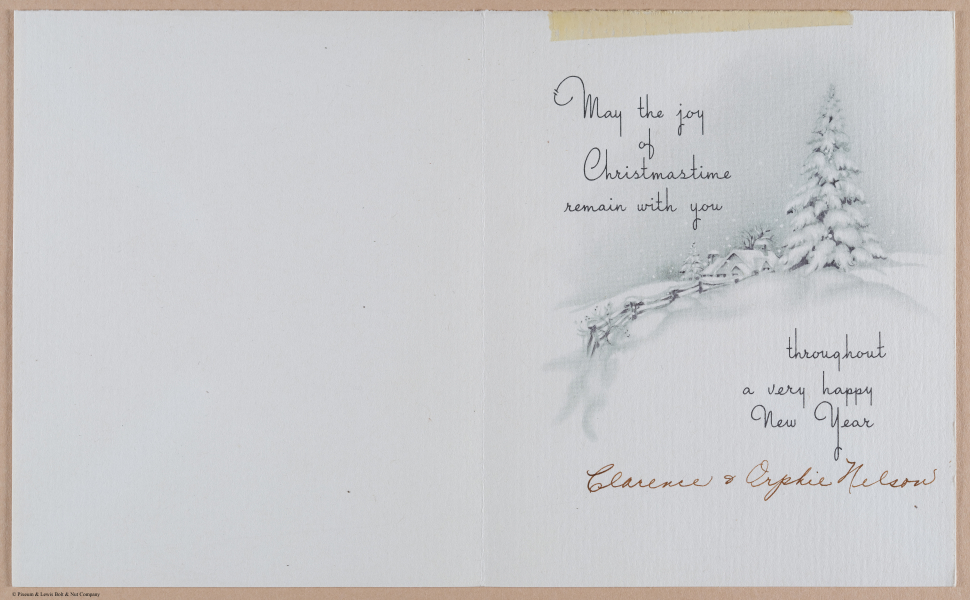 May the joy
of
Christmastime
remain with you
throughout
a very happy
New Year
Clarence & Orphie Nelson
© Peanum & Lewis Bob & Nut Company